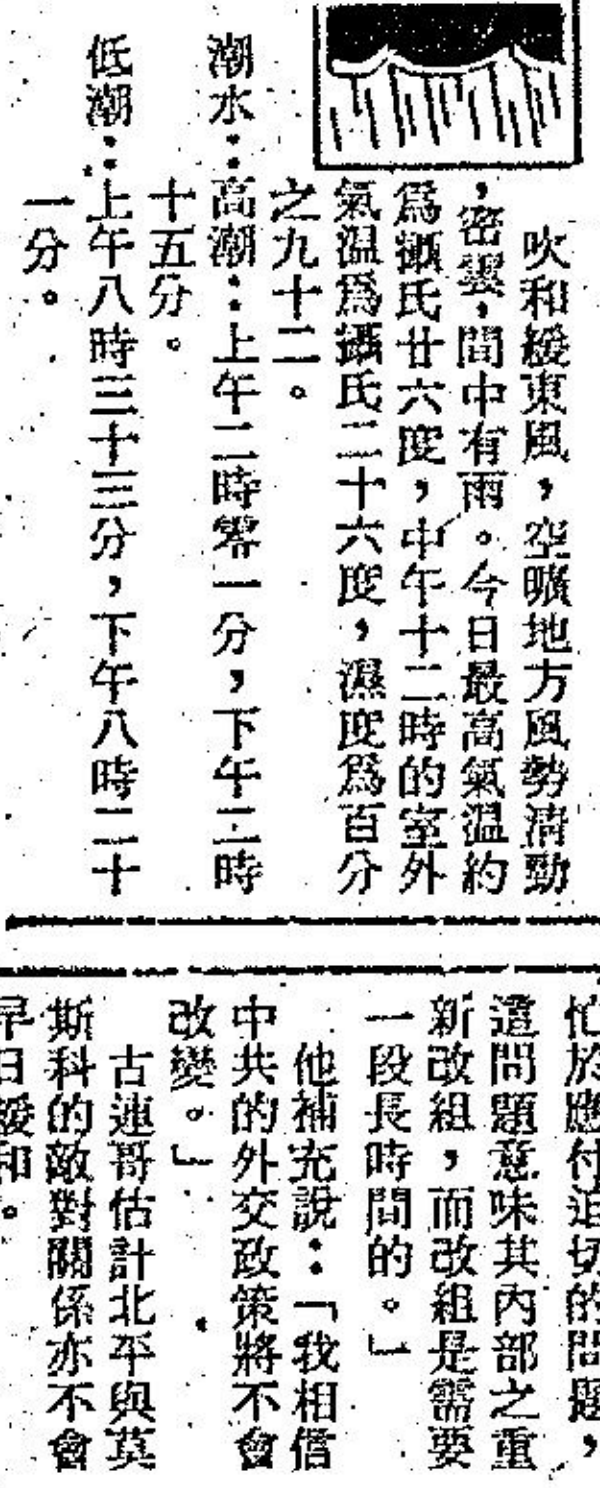 吹和緩東風，空曠地方風勢清勁
，密雲，間中有雨。今日最高氣溫約
爲攝氏廿六度，中午十二時的室外
氣溫爲攝氏二十六度，濕度爲百分
之九十二。
潮水：高潮：上午二時零一分，下午二時
十五分。
低潮：上午八時三十三分，下午八時二十
一分。
忙於應付迫切的問題，
這問題意味其內部之重
新改組，而改組是需要
一段長時間的。」
他補充說：「我相信
中共的外交政策將不會
改變。」
古連哥估計北平與莫
斯科的敵對關係亦不會
早日緩和。